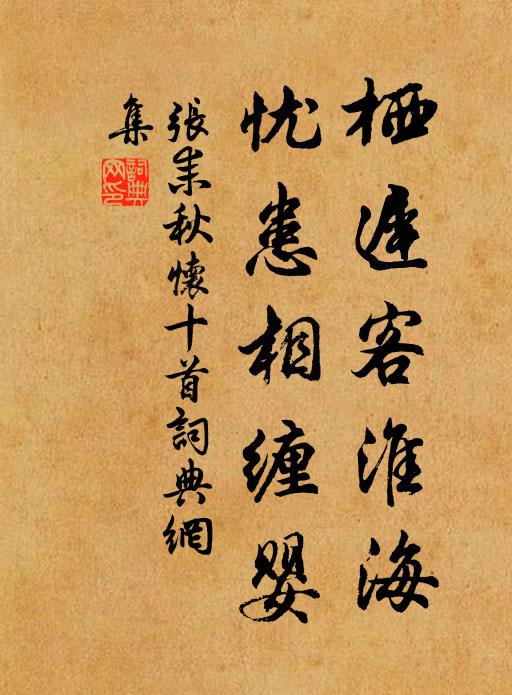 栖遲客淮海
忧患相缠婴
張耒秋懷十首詞典網
集
詞典網印